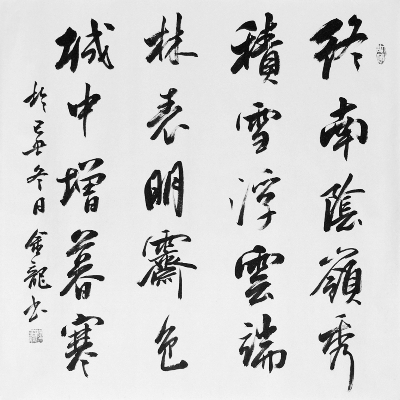 终南陰嶺秀
積雪浮雲端
林表明霽色
城中增暮寒
於己丑冬日金龍书